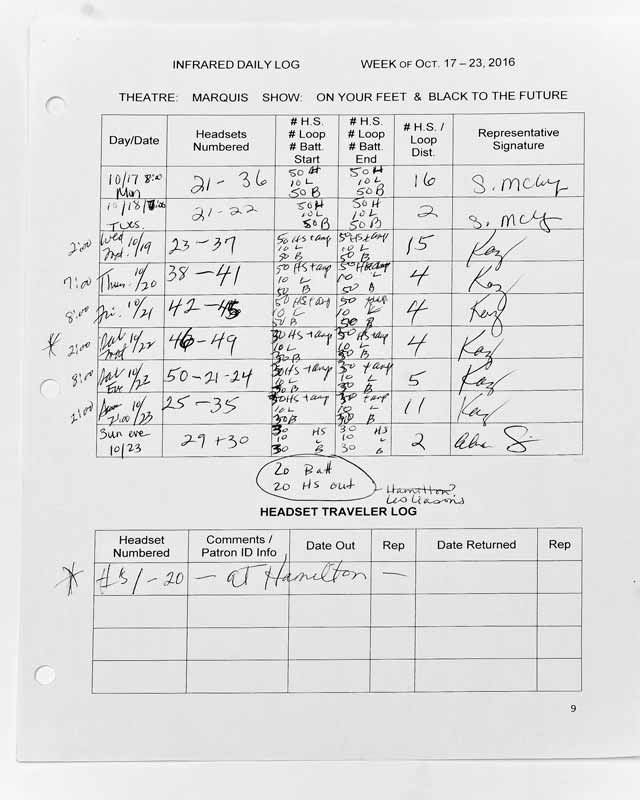 INFRARED DAILY LOG WEEK OF OCT. 17 – 23, 2016
THEATRE: MARQUIS SHOW: ON YOUR FEET & BLACK TO THE FUTURE
Day/Date Headsets Numbered # H.S. # Loop # Batt. Start # H.S. # Loop # Batt. End # H.S. / Loop Dist. Representative Signature
10/17 8:00 Mon 21 - 36 50 H 10 L 50 B 50 H 10 L 50 B 16
10/18 Tues. 21-22 50H 10L 50B 50H 10L 50B 2
2:00 Wed 10/19 23 - 37 50 HS + amp 10 L 50 B 50 HS + amp 10 L 50 B 15 Kaz
7:00 Thur. 10/20 38 - 41 50 HS + amp 10 L 50 B 50 HS + amp 10 L 50 B 4 Kaz
8:00 Fri. 10/21 42 - 45 50 HS + amp 10 L 50 B 50 10 L 50 B 4 Kaz
* 2:00 Sat 10/22 46 - 49 30 HS + amp 10 L 30 B 30 HS + amp 10 L 30 B 4 Kaz
8:00 Sat Eve 10/22 50-21-24 30 HS + amp 10 L 30 B 30 + amp 10 L 30 B 5 Kaz
2:00 2:00 10/23 25 - 35 30 HS + amp 10 L 30 B 30 + amp 10 L 30 B 11 Kaz
Sun eve 10/23 29 + 30 30 HS 10 L 30 B 30 HS 10 L 30 B 2
20 Batt
20 HS out - Hamilton?
HEADSET TRAVELER LOG
Headset Numbered Comments / Patron ID Info Date Out Rep Date Returned Rep
* - 20 - at Hamilton -
9